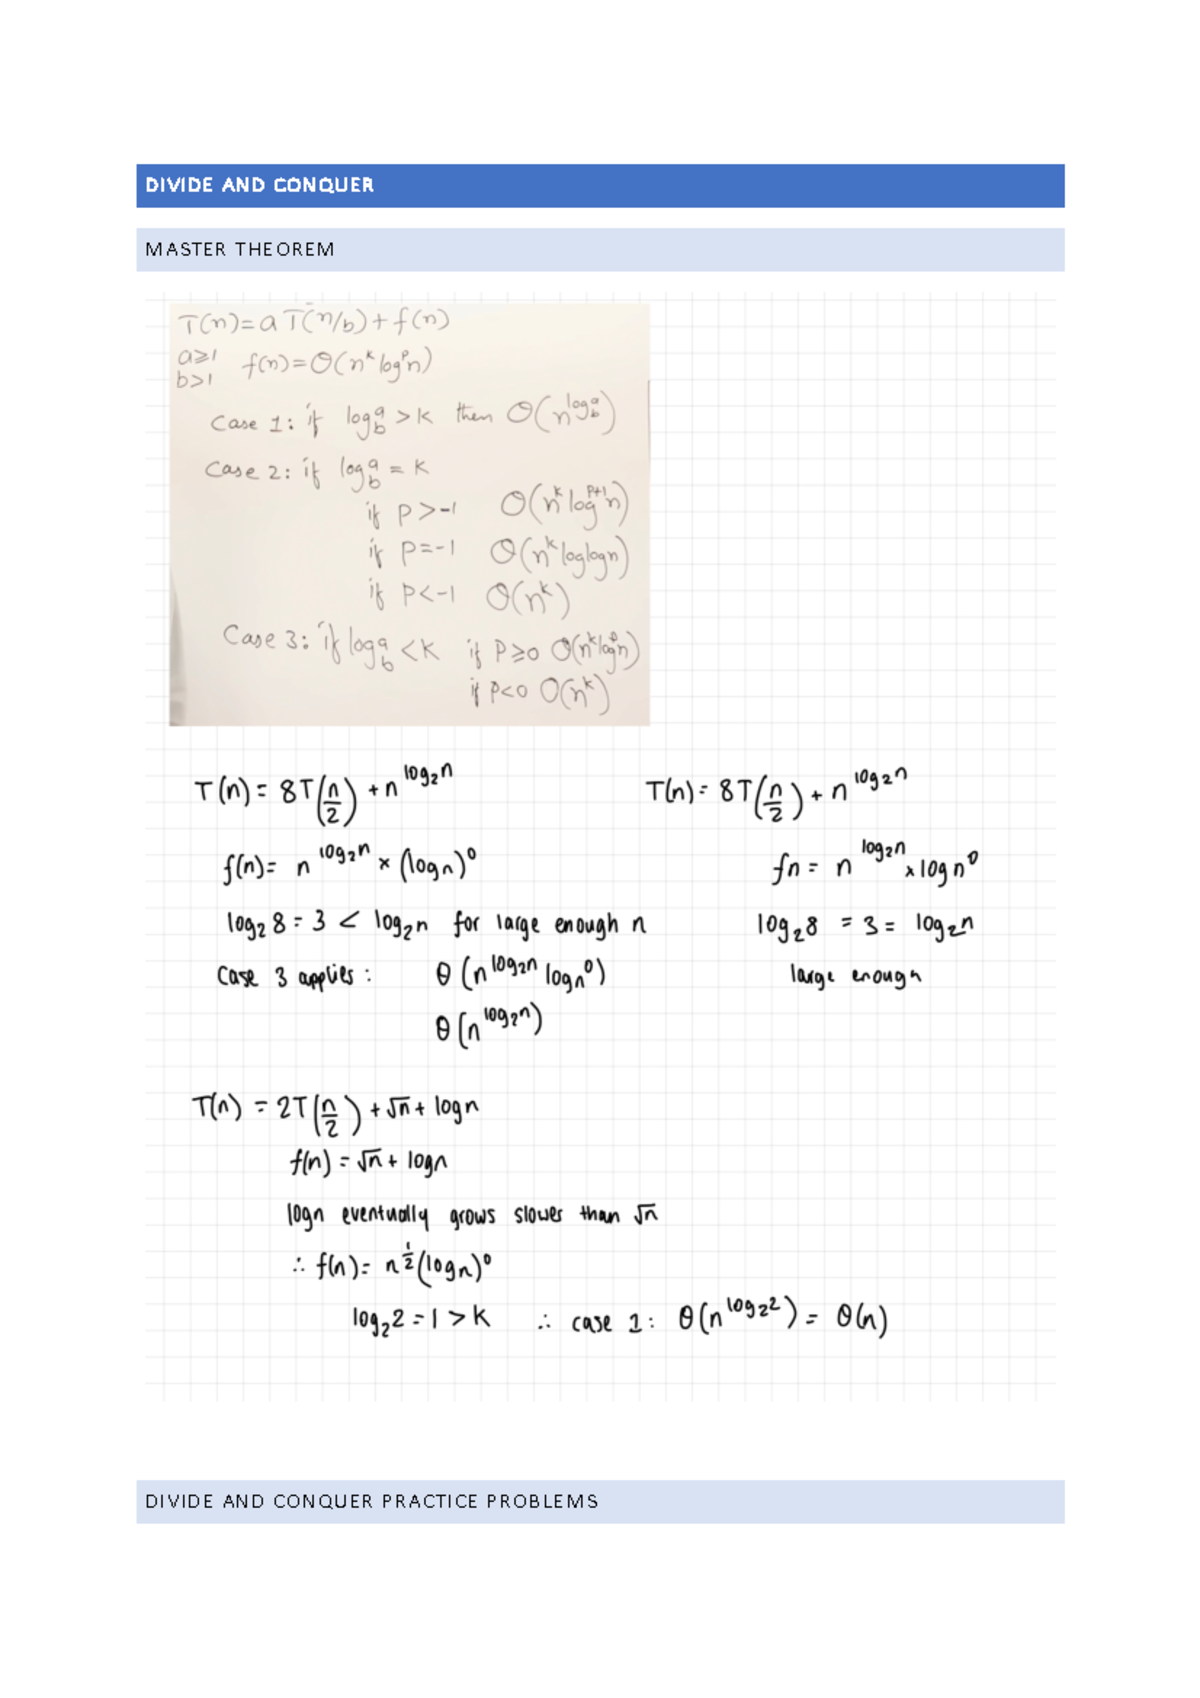 DIVIDE AND CONQUER
MASTER THEOREM
T(n)=aT(n/b)+f(n)
a≥1
b>1 f(n)=Θ(n^k log^p n)
Case 1: if log_b^a >k then Θ(n^{log_b^a})
Case 2: if log_b^a = k
if P>-1 Θ(n^k log^{P+1} n)
if P=-1 Θ(n^k loglogn)
if P<-1 Θ(n^k)
Case 3: if log_b^a <k if P≥0 Θ(n^k log^p n)
if P<0 O(n^k)
T(n) = 8T(n/2) + n^{log₂n}
f(n)= n^{log₂n} × (logn)⁰
log₂8 = 3 < log₂n for large enough n
Case 3 applies: θ(n^{log₂n} logn⁰)
θ(n^{log₂n})
T(n) = 8T(n/2) + n^{log₂n}
fn = n^{log₂n} × logn⁰
log₂8 = 3 = log₂n
large enough
T(n) = 2T(n/2) + √n + logn
f(n) = √n + logn
logn eventually grows slower than √n
∴ f(n) = n^{1/2}(logn)⁰
log₂2 = 1 > K ∴ case 1: θ(n^{log₂2}) = θ(n)
DIVIDE AND CONQUER PRACTICE PROBLEMS